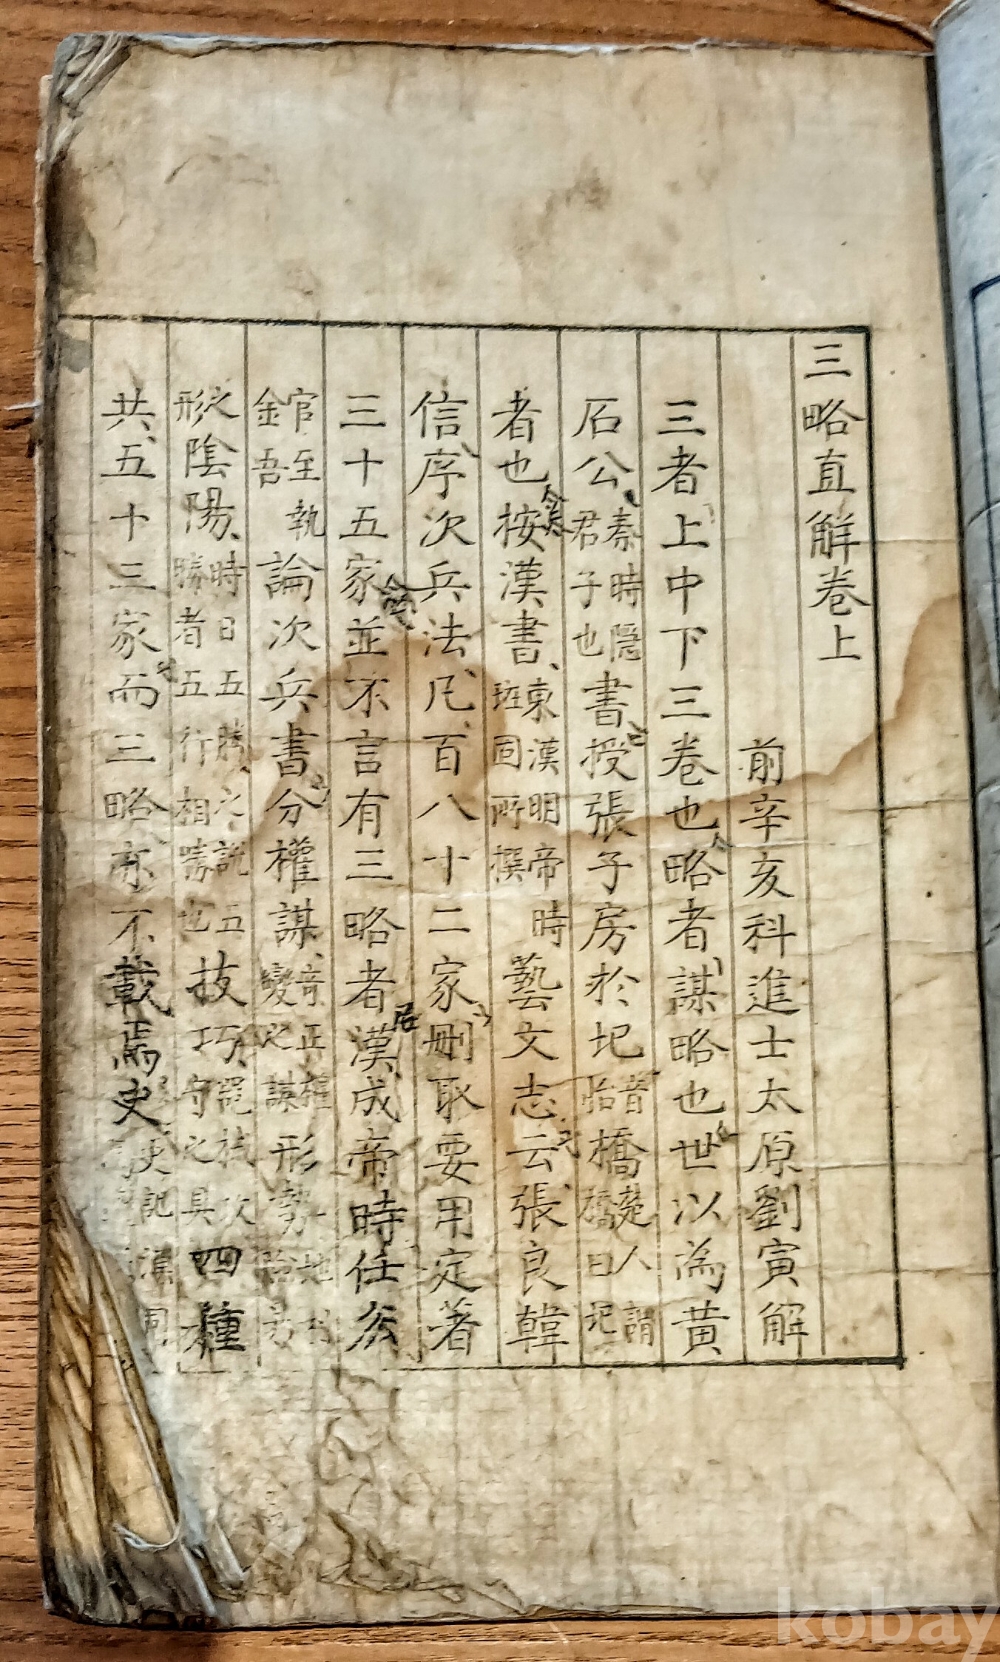 三略直解卷上
前辛亥科進士太原劉寅解
三者上中下三卷也略者謀略也世以為黃
石公秦時隱君子也書授張子房於圯音怡橋楚人謂橋曰圯
者也按漢書東漢明帝時班固所撰藝文志云張良韓
信序次兵法凡百八十二家刪取要用定著
三十五家並不言有三略者漢成帝時任宏
官至執金吾論次兵書分權謀奇正權變之謀形勢
之形陰陽時日五勝之說五勝者五行相勝也技巧器械攻守之具四種
共五十三家而三略亦不載焉史史記漢
kobay